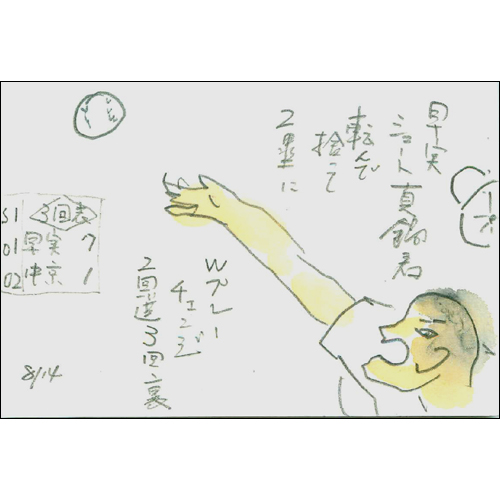 早実
ショート真鍋君
転んで
捨って
2塁に
Wプレー
チェンジ
2回送3回裏
S1 3回表
01 早実 7
02 中京 1
8/14